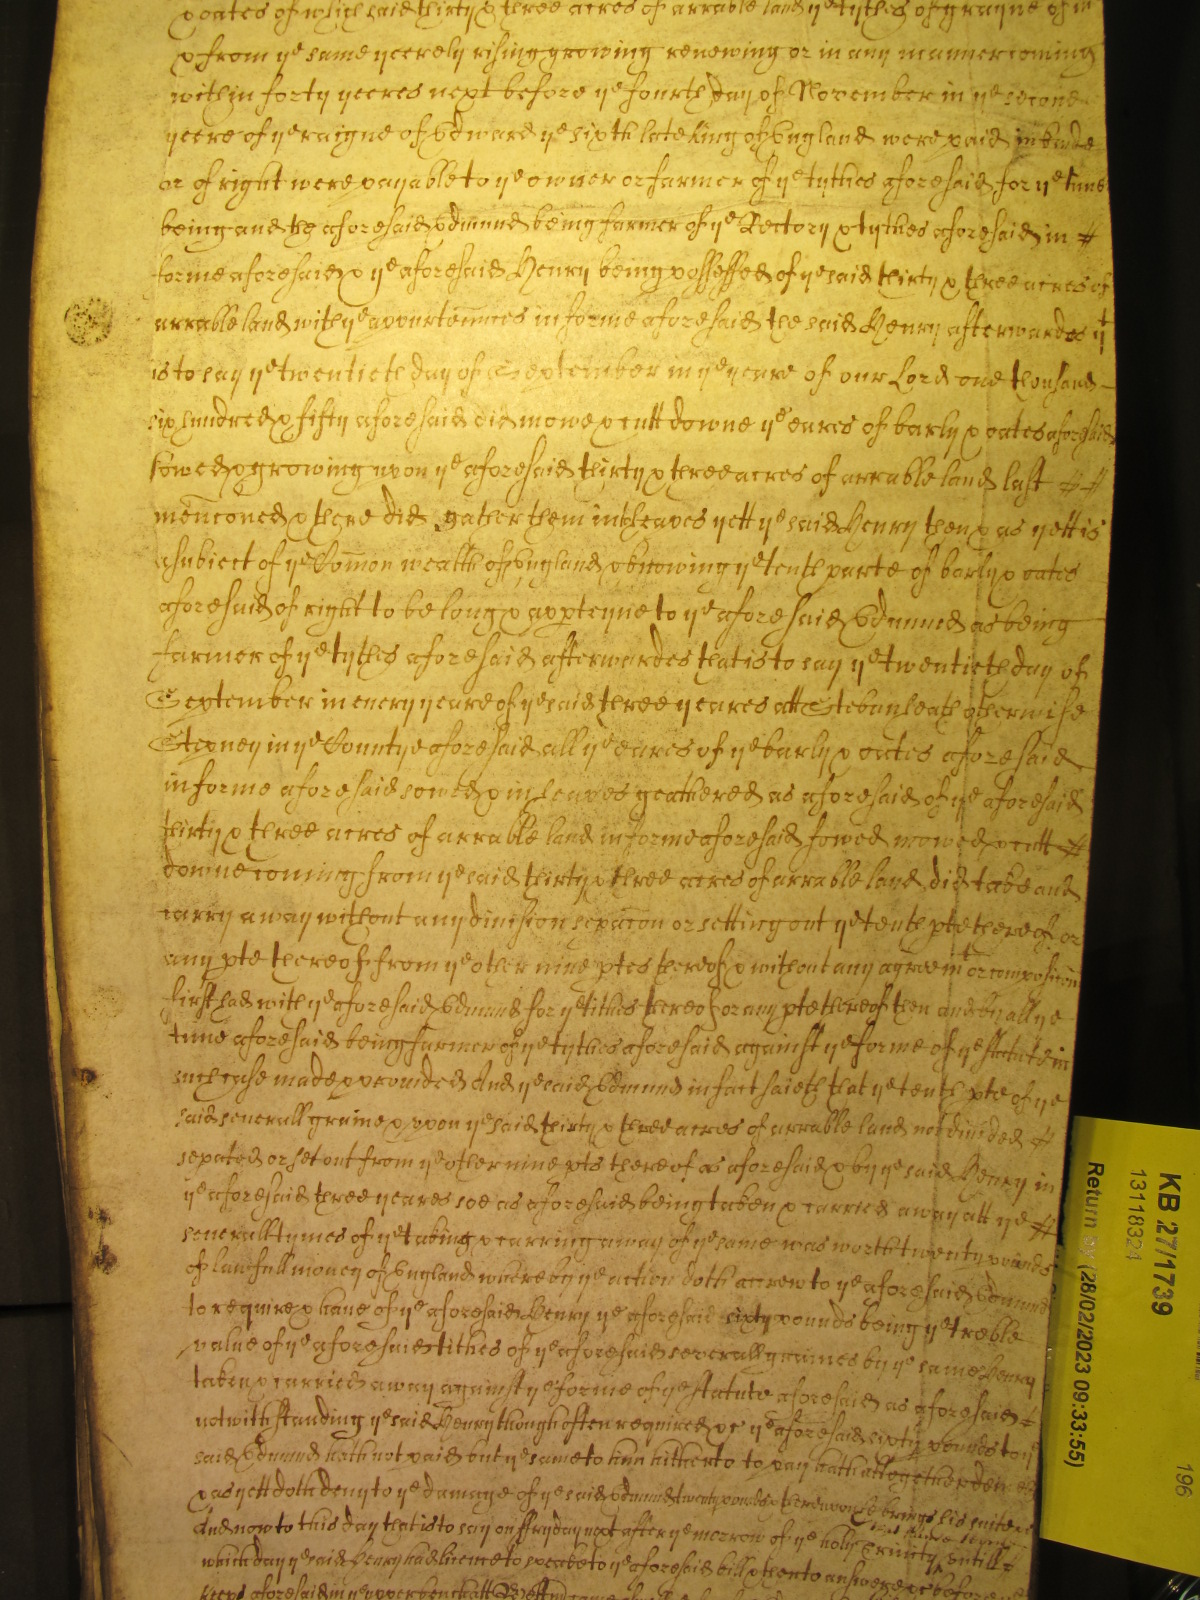 & oates of which said thirty & three acres of arrable land ye tythes of grayne of
& from ye same yeerely rising growing renewing or in any manner coming
within forty yeeres next before ye fourth day of November in ye second
yeere of ye raigne of Edward ye sixth late King of England were paid in kinde
or of right were payable to ye owner or farmer of ye tythes aforesaid for ye time
being and the aforesaid Edmund being farmer of ye Rectory & tythes aforesaid in
forme aforesaid & ye aforesaid Henry being possessed of ye said thirty & three acres of
arrable land with ye appurtennces in forme aforesaid the said Henry afterwardes yt
is to say ye twentieth day of September in ye yeare of our Lord one thousand
six hundred & fifty aforesaid did mowe & cutt downe ye eares of barly & oates aforesaid
sowed & growing upon ye aforesaid thirty & three acres of arrable land last
menconed & there did gather them in heapes yett ye said Henry then & as yett is
a subiect of ye Common wealth of England & knowing ye tenth parte of barly & oates
aforesaid of right to belong & apperteyne to ye aforesaid Edmund as being
farmer of ye tythes aforesaid afterwardes that is to say ye twentieth day of
September in every yeare of ye said three yeares att Stebunheath otherwise
Stepney in ye Countye aforesaid all ye eares of ye barly & oates aforesaid
in forme aforesaid sowed & in heapes geathered as aforesaid of ye aforesaid
thirty & three acres of arrable land in forme aforesaid sowed mowed & cutt
downe coming from ye said thirty & three acres of arrable land did take and
carry away without any division sepacon or setting out ye tenth pte thereof or
any pte thereof from ye other nine ptes thereof & without any agreemt or composicion
first had with ye aforesaid Edmund for ye tithes thereof or any pte thereof then and by all ye
time aforesaid being farmer of ye tythes aforesaid against ye forme of ye statute in
such case made & provided And ye said Edmund in fact saieth that ye tenth pte of ye
said severall graine & upon ye said thirty & three acres of arrable land not divided
sepated or set out from ye other nine pts thereof as aforesaid & by ye said Henry in
ye aforesaid three yeares soe as aforesaid being taken & carried away att ye
severall tymes of ye taking & carring away of ye same was worth twenty pounds
of lawfull money of England whereby ye action doth accrew to ye aforesaid Edmund
to require & have of ye aforesaid Henry ye aforesaid sixty pounds being ye treble
value of ye aforesaid tithes of ye aforesaid severall graines by ye same Henry
taken & carried away against ye forme of ye statute aforesaid as aforesaid
notwithstanding ye said Henry though often required &c ye aforesaid sixty pounds to ye
said Edmund hath not paid but ye same to him hitherto to pay hath altogether denied
& as yett doth deny to ye damage of ye said Edmund twenty pounds & thereupon he brings his suite &c
And now to this day that is to say on ffryday next after ye morrow of ye holy Trinity untill
which day ye said Henry had licence to speake to ye aforesaid bill & then to answere &c before
Keeps aforesaid in ye upper bench att
KB 27/1739
13118324
Return by (28/02/2023 09:33:55)
196